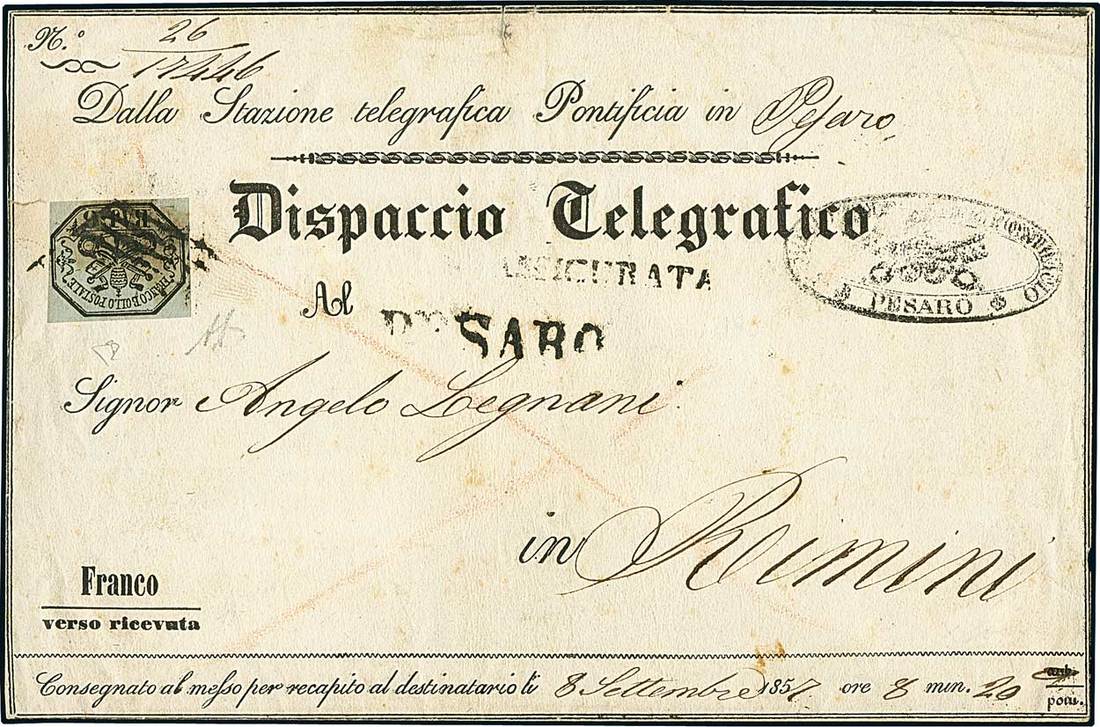 N.º 26
17446
Dalla Stazione telegrafica Pontificia in Pesaro
Dispaccio Telegrafico
BAJ. 6
FRANCO BOLLO POSTALE
ASSICURATA
PESARO
PESARO
Al
Signor Angelo Legnani
in Rimini
Franco
verso ricevuta
Consegnato al messo per recapito al destinatario li 8 Settembre 1857. ore 8 min. 20 pom.